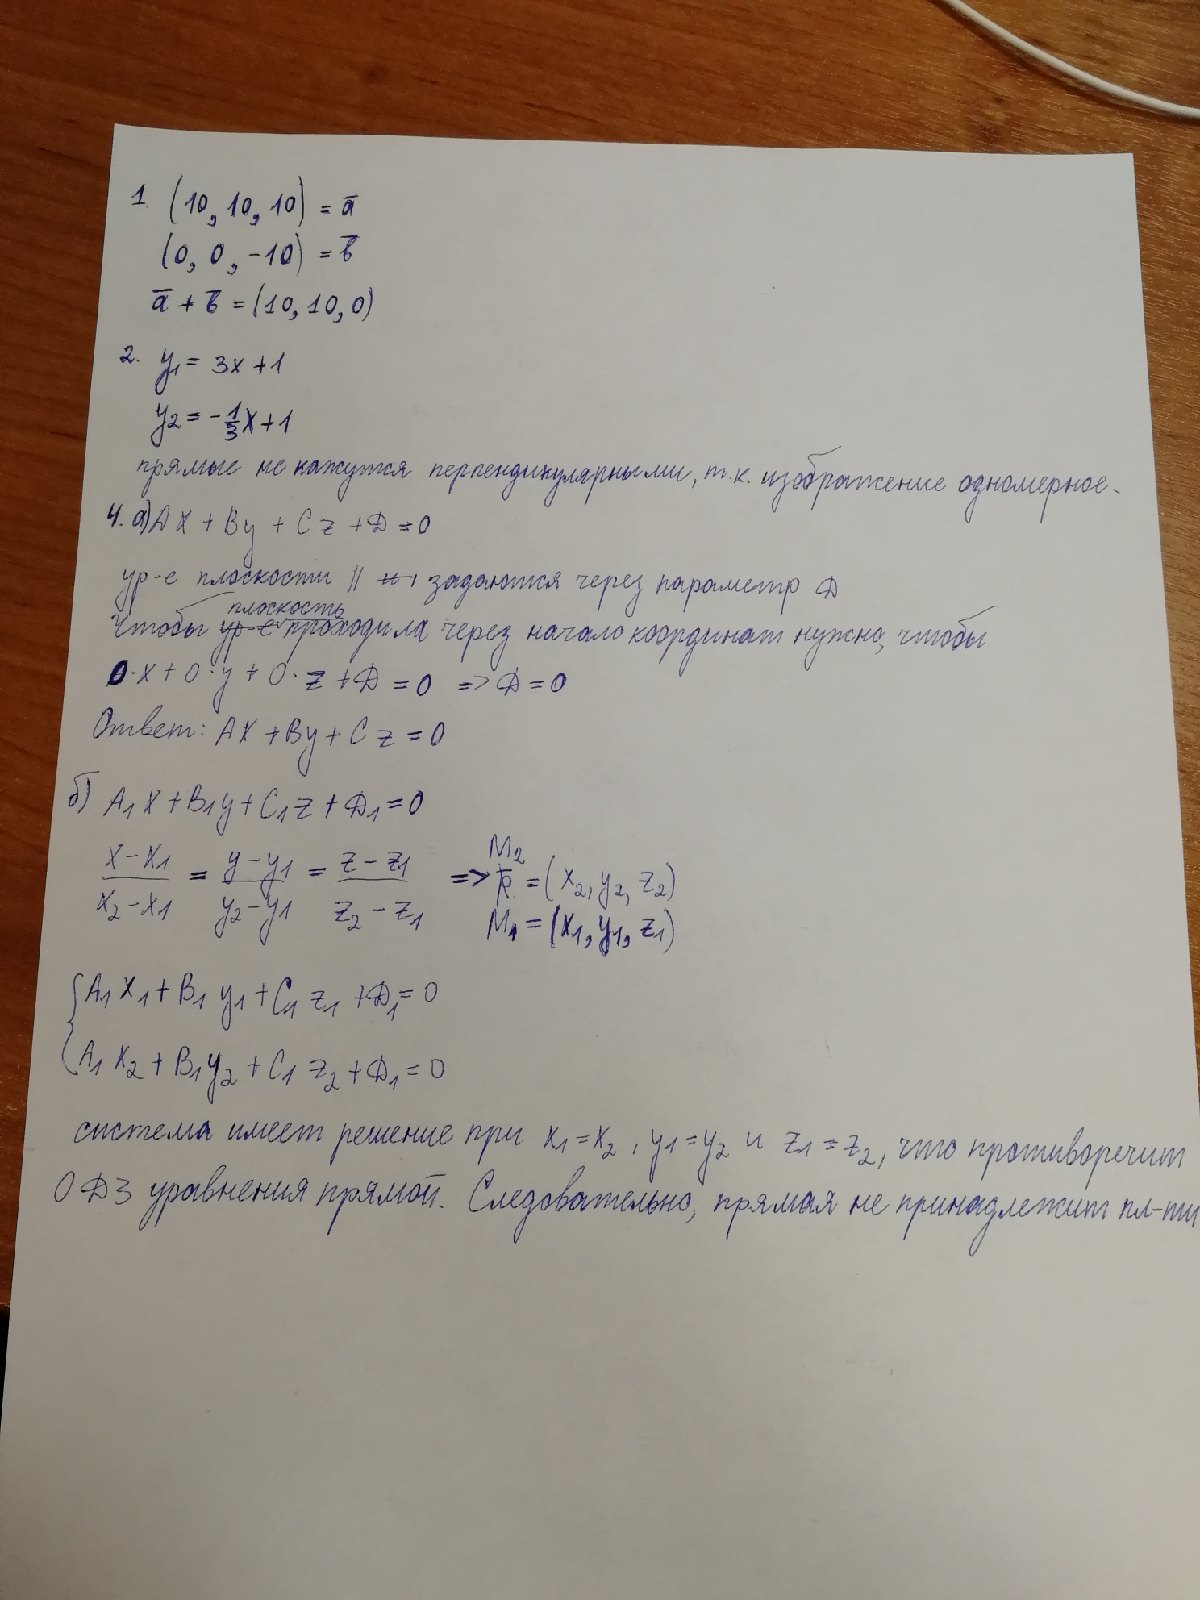 1. (10, 10, 10) = a̅
(0, 0, -10) = b̅
a̅ + b̅ = (10, 10, 0)
2. y₁ = 3x + 1
y₂ = -1/3 x + 1
прямые не кажутся перпендикулярными, т.к. изображение одномерное.
4. а) Ax + By + Cz + D = 0
ур-е плоскости || задаются через параметр D
плоскость
Чтобы ур-е проходила через начало координат нужно, чтобы
0·x + 0·y + 0·z + D = 0 => D = 0
Ответ: Ax + By + Cz = 0
б) A₁x + B₁y + C₁z + D₁ = 0
(x - x₁)/(x₂ - x₁) = (y - y₁)/(y₂ - y₁) = (z - z₁)/(z₂ - z₁) => M₂ = (x₂, y₂, z₂)
M₁ = (x₁, y₁, z₁)
{ A₁x₁ + B₁y₁ + C₁z₁ + D₁ = 0
A₁x₂ + B₁y₂ + C₁z₂ + D₁ = 0
система имеет решение при x₁ = x₂, y₁ = y₂ и z₁ = z₂, что противоречит
ОДЗ уравнения прямой. Следовательно, прямая не принадлежит пл-ти